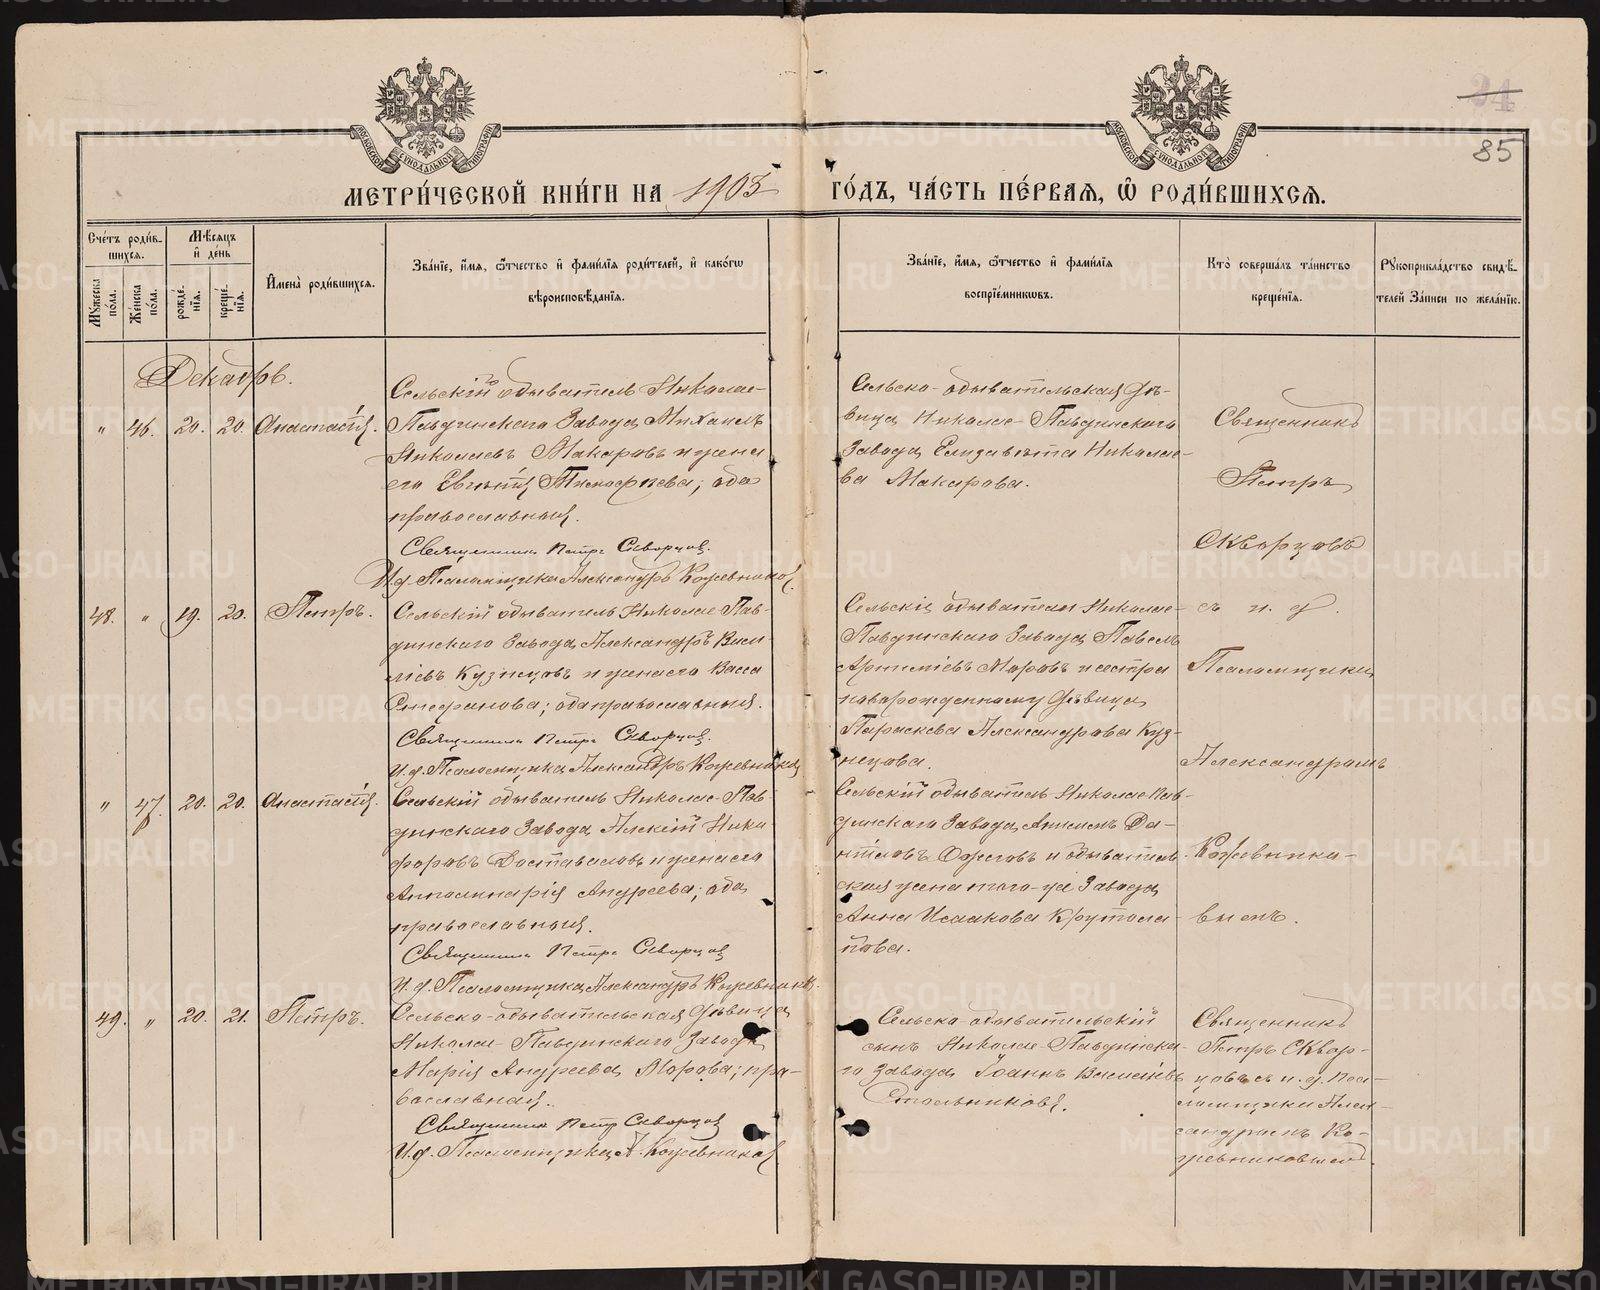 34
85
МЕТРИ́ЧЕСКОЙ КНИ́ГИ НА 1903 ГО́ДЪ, ЧА́СТЬ ПЕ́РВАЯ, Ѿ РОДИ́ВШИХСЯ.
Сче́тъ роди́в-
шихся.
Мѣ́сяцъ
и҆ де́нь
И҆мена̀ роди́вшихся.
Зва́нїе, и҆́мя, ѻ҆́тчество и҆ фами́лїя роди́телей, и҆ како́гѡ
вѣроисповѣ́данїя.
Зва́нїе, и҆́мя, ѻ҆́тчество и҆ фами́лїя
воспрїе́мникѡвъ.
Кто̀ соверша́лъ та́инство
креще́нїя.
Рꙋкоприкла́дство свидѣ́-
телей За́писи по жела́нїю.
Мꙋ́жеска
по́ла.
Же́нска
по́ла.
рожде́-
нїя.
креще́-
нїя.
Декабрь.
" 46. 20. 20. Анастасія.
Сельскій обыватель Николае-
Павдинскаго Завода Михаилъ
Николаевъ Макаровъ и жена
его Тимофеева; оба
православныя.
Священникъ Петръ Скворцов.
И.д. Псаломщика Александръ Кожевников.
Сельско-обывательская дѣ-
вица Николае-Павдинскаго
Завода Елизавета Николае-
ва Макарова.
Священникъ
Петръ
Скворцовъ
48. " 19. 20. Петръ.
Сельскій обыватель Николае-Пав-
динскаго Завода Александръ Васи-
ліевъ Кузнецовъ и жена его Васса
Стефанова; оба православныя.
Священникъ Петръ Скворцов.
И.д. Псаломщика Александръ Кожевников
Сельскіе обыватели Николае-
Павдинскаго Завода Павелъ
Артеміевъ Моровъ и сестра
новорожденному дѣвица
Параскева Александрова Куз-
нецова.
съ и. д.
Псаломщика
Александромъ
" 47. 20. 20. Анастасія.
Сельскій обыватель Николае-Пав-
динскаго Завода Алексій Ники-
форовъ Доставаловъ и жена его
Апполинарія Андреева; оба
православныя.
Священникъ Петръ Скворцов
И.д. Псаломщика Александръ Кожевников.
Сельскій обыватель Николае-Пав-
динскаго Завода Да-
ніиловъ Ожеговъ и обыватель-
ская жена того-же Завода
Анна Исаакова Крутола-
пова.
Кожевнико-
вымъ.
49. " 20. 21. Петръ.
Сельско-обывательская дѣвица
Николае-Павдинскаго Завода
Марія Андреева Морова; пра-
вославная.
Священникъ Петръ Скворцов
И.д. Псаломщика А. Кожевников
Сельско-обывательскій
сынъ Николае-Павдинска-
го Завода Іоаннъ Василіевъ
Стольниковъ.
Священникъ
Петръ Сквор-
цовъ съ и.д. Пса-
ломщика Алек-
сандромъ Ко-
жевниковымъ.